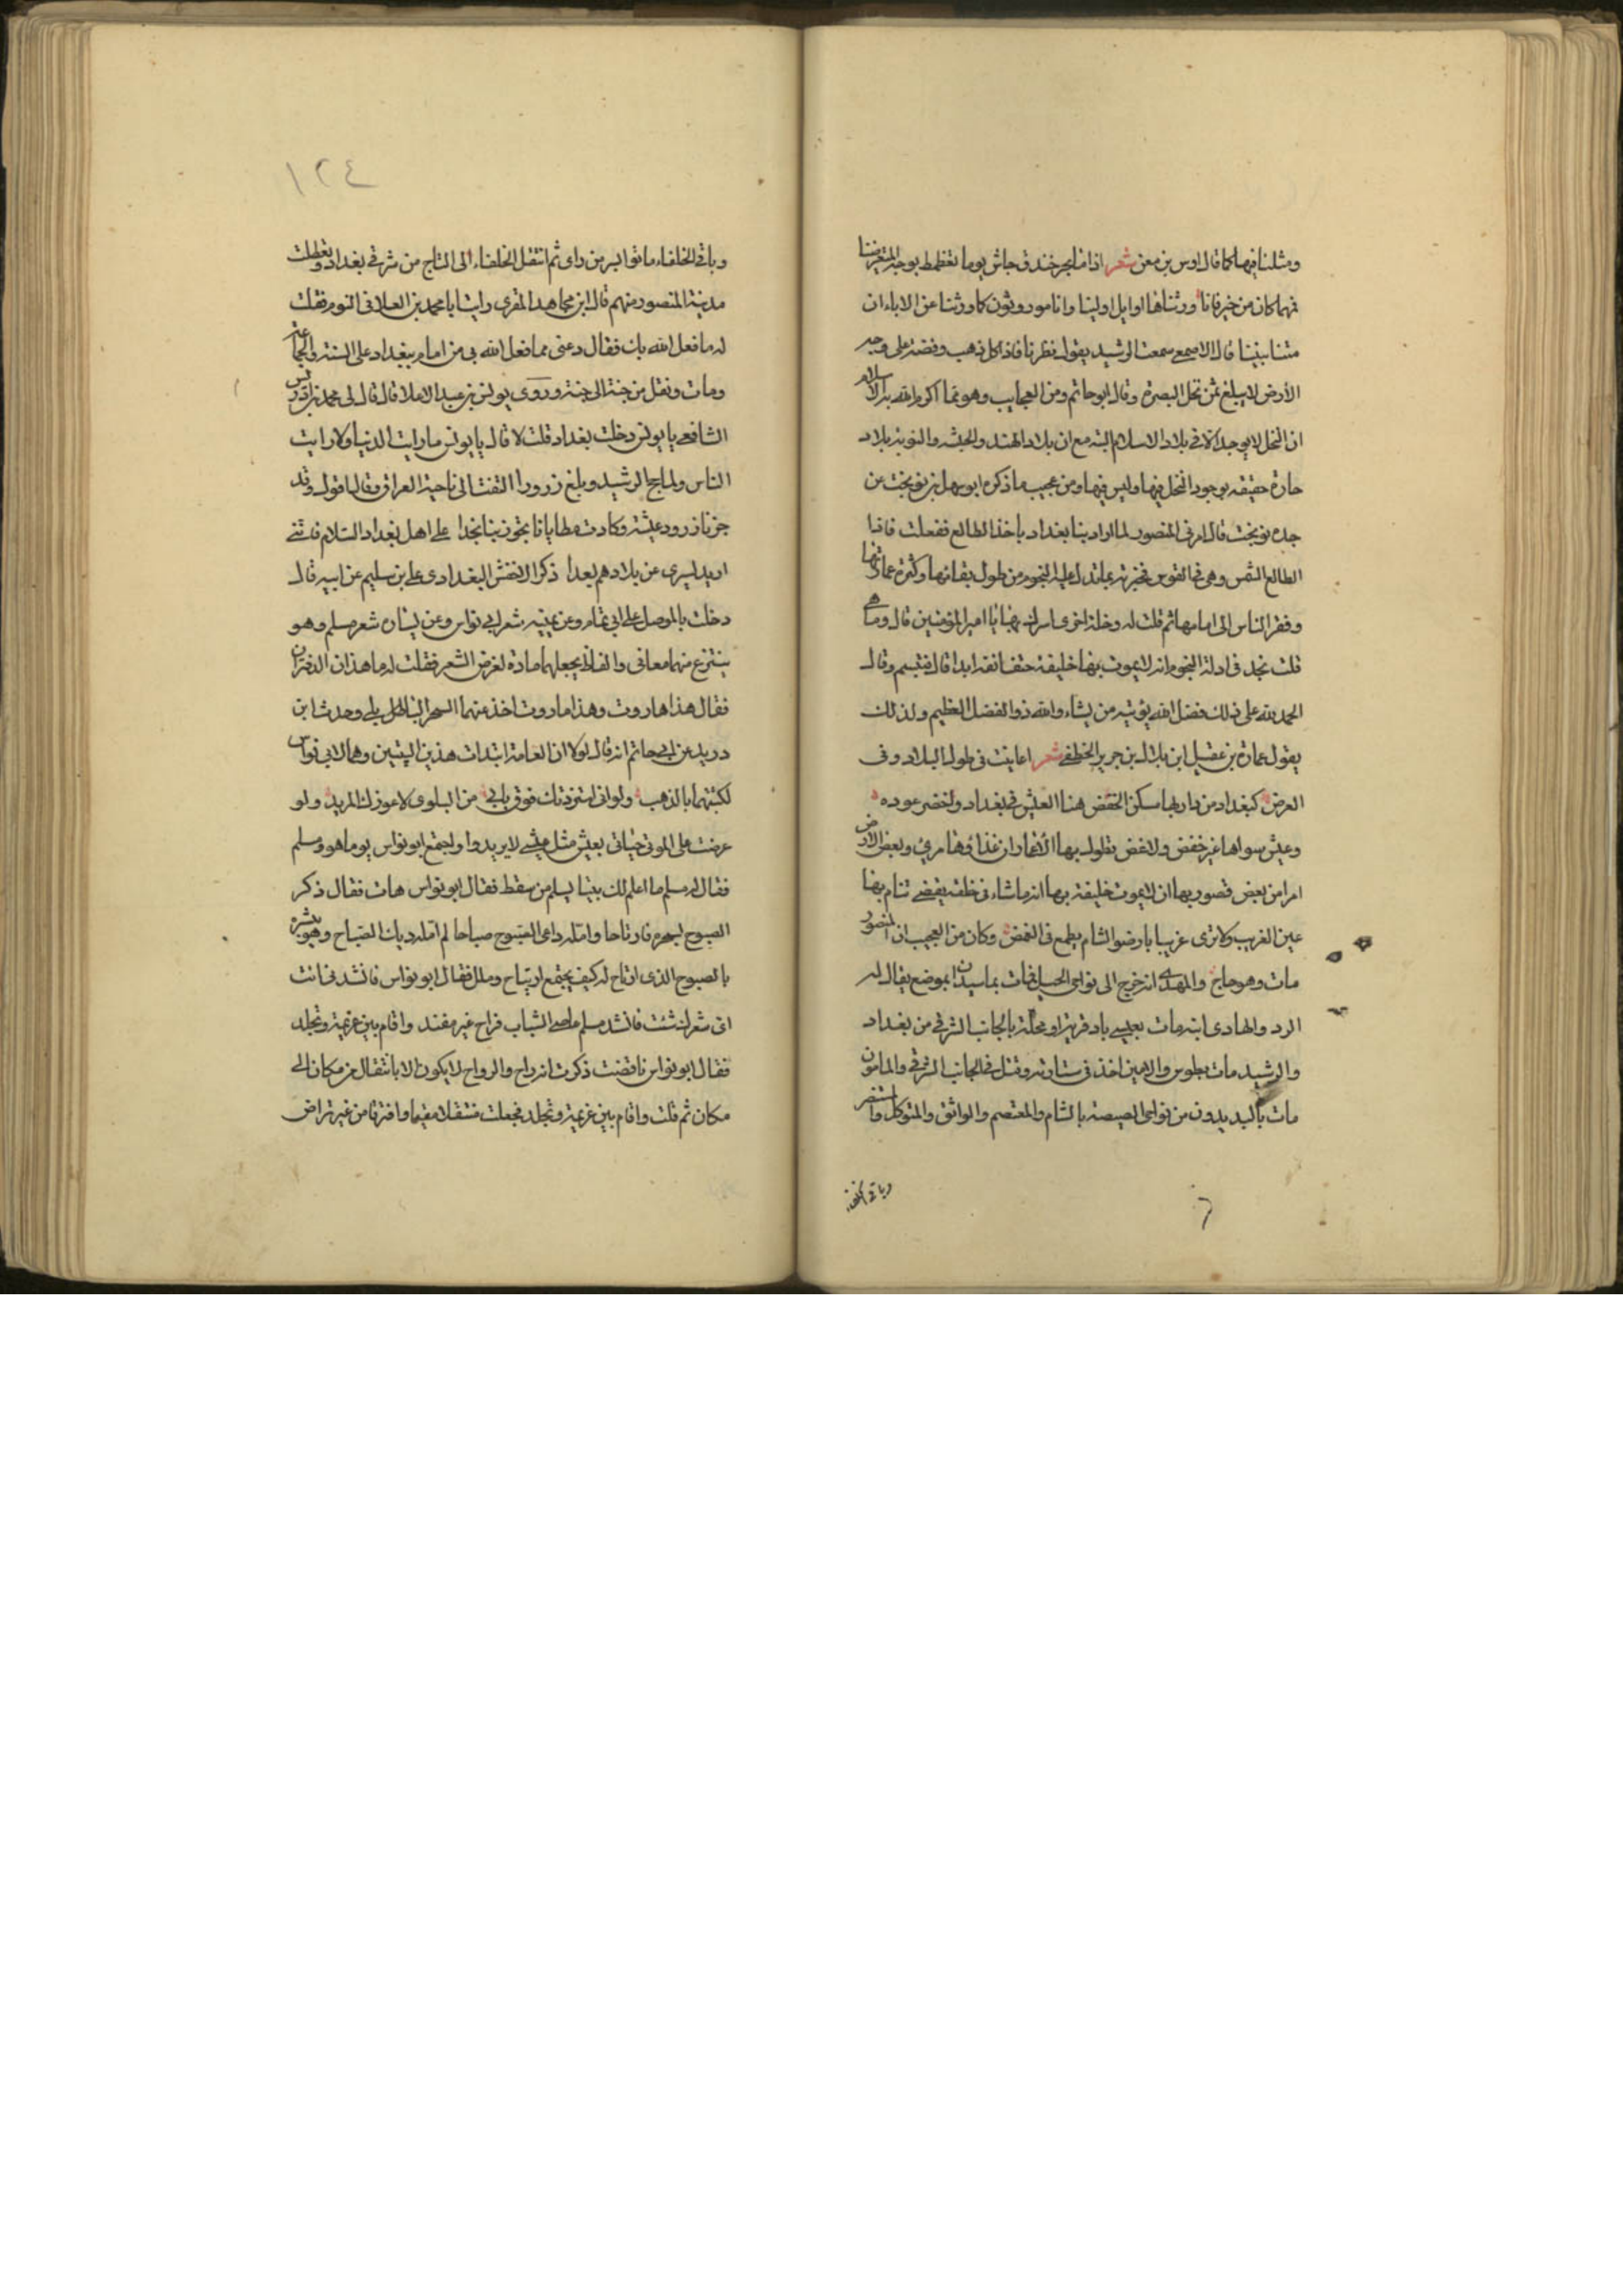 ومثلنا فيها كما قال اوس بن معن شعر اذا ما بحر خندق جاش يوما تغطمط بوجه المتعرضينا
فمهما كان من خير فانا ورثناها اوايل اولينا وانا مورويثون كما ورثنا عن الاباء ان
متنا بنينا قال الاصمعي سمعت الرشيد يقول نظرنا فاذا كل ذهب وفضة على وجه
الأرض لا يبلغ ثمن نخل البصرة وقال ابو حاتم ومن العجايب وهو مما اكرم الله به الاسلام
ان النخل لا يوجد الا في بلاد الاسلام البتة مع ان بلاد الهند والحبشه والنوبة بلاد
حارة حقيقه بوجود النخل فيها وليس فيها ومن عجيب ما ذكره ابو سهل بن نوبخت عن
جده نوبخت قال امرني المنصور لما اراد بنا بغداد باخذ الطالع ففعلت فاذا
الطالع الشمس وهي في القوس فخبرته بما تدل عليه النجوم من طول بقائها وكثرة عمارتها
وفقر الناس الى ما مها ثم قلت له وخلة اخرى اسرك بها يا امير المؤمنين قال وما هي
قلت نجد في ادلة النجوم انه لا يموت بها خليفة حتف انفه ابدا قال فتبسم وقال
الحمد لله على ذلك فضل الله يؤتيه من يشاء والله ذو الفضل العظيم ولذلك
يقول عمارة بن عقيل ابن بلال بن جرير الخطفي شعر اعاينت في طول البلاد وفي
العرض كبغداد من دار بها مسكن الخفض هنا العيش في بغداد واخضر عوده
وعيش سواها غير خفض ولا غض تطول بها الاعمار ان غذاؤها مرئ وبعض الارض
امرا من بعض قضى ربها ان لا يموت خليفة بها انه ما شاء في خلقه يقضي تنام بها
عين الغريب ولا ترى غريبا بارض الشام يطمع في الغمض وكان من العجيب ان المنصور
مات وهو حاج والمهدى انه خرج الى نواحى الجبل فمات بماسبذان بموضع يقال له
الرد والهادى ابنه مات بعيسى باد قرية او محلة بالجانب الشرقي من بغداد
والرشيد مات بطوس والامين اخذ في شتاوته وقتل في الجانب الشرقي والمامون
مات بالبديدون من نواحى المصيصة بالشام والمعتصم والواثق والمتوكل والمنتصر
وباقي الخلفاء
١٢٤
وباقي الخلفاء ماتوا بسر من راى ثم انتقل الخلفاء الى التاج من شرقي بغداد وتعطلت
مدينة المنصور منهم قال ابن مجاهد المقرى رايت ابا محمد بن العلا في النوم فقلت
له ما فعل الله بك فقال دعنى مما فعل الله بي من اقام ببغداد على السنة والجماعة
ومات ونقل من جنة الى جنة وروى يونس بن عبد الاعلا قال قال لى محمد بن ادريس
الشافعي يا يونس دخلت بغداد قلت لا قال يا يونس ما رايت الدنيا ولا رايت
الناس ولما حج الرشيد وبلغ زرودا التفت الى ناحية العراق وقال اقول وقد
جزنا زرود عشية وكادت مطايانا تجوز بنا نجدا على اهل بغداد السلام فانني
ازيد لسيرى عن بلادهم بعدا ذكر الاخفش البغدادى على بن سليم عن ابيه قال
دخلت بالموصل على ابي تمام وعن يمينه شعر ابي نواس وعن يساره شعر مسلم وهو
ينتزع منهما معانى والفاظ يجعلها مادة لغرض الشعر فقلت له ما هذان الدفتران
فقال هذا هاروت وهذا ماروت اخذ عنهما السحر البابلي وحدث ابن
دريد عن ابي حاتم انه قال لولا ان العامة ابتدات هذين البيتين وهما لابي نواس
لكتبتهما بالذهب ولو اني استزدتك فوق ما بي من البلوى لاعوزك المزيد ولو
عرضت على الموتى حياتى بعيش مثل عيشي لا يريدوا واجتمع ابو نواس يوما هو ومسلم
فقال له مسلم ما اعلم لك بيتا يسلم من سقط فقال ابو نواس هات فقال ذكر
الصبوح بسحرة فارتاحا وامله داعى الصبوح صياحا لم امله ديك الصباح وهو يبشره
بالصبوح الذى ارتاح له كيف يجتمع ارتياح وملل فقال ابو نواس فانشدني انت
اى شعرك شئت فانشد مسلم عاصى الشباب فراح غير مفند واقام بين عزيمة وتجلد
فقال ابو نواس ناقضت ذكرت انه راح والرواح لا يكون الا بانتقال من مكان الى
مكان ثم قلت واقام بين عزيمة وتجلد فجعلت منتقلا مقيما وافترقا من غير تراض